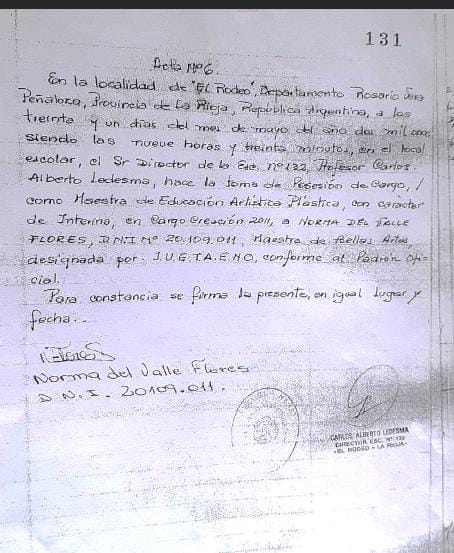 131
Acta Nº 6.
En la localidad de "EL Rodeo", Departamento Rosario Vera
Peñaloza, Provincia de La Rioja, República Argentina, a los
treinta y un días del mes de mayo del año dos mil once
siendo las nueve horas y treinta minutos, en el local
escolar, el Sr Director de la Esc. nº 133, Profesor Carlos
Alberto Ledesma, hace la toma de Posesión de Cargo, /
como Maestra de Educación Artística Plástica, con caracter
de Interino, en Cargo Creación 2011, a NORMA DEL VALLE
FLORES, D.N.I Nº 20.109.011, Maestra de Bellas Artes,
designada por: J.U.E.T.A.E.N.O, conforme al Padrón Ofi-
cial.
Para constancia se firma la presente, en igual lugar y
fecha..
Norma del Valle Flores
D.N.I. 20109.011.
CARLOS ALBERTO LEDESMA
DIRECTOR ESC. Nº 133
-EL RODEO - LA RIOJA-